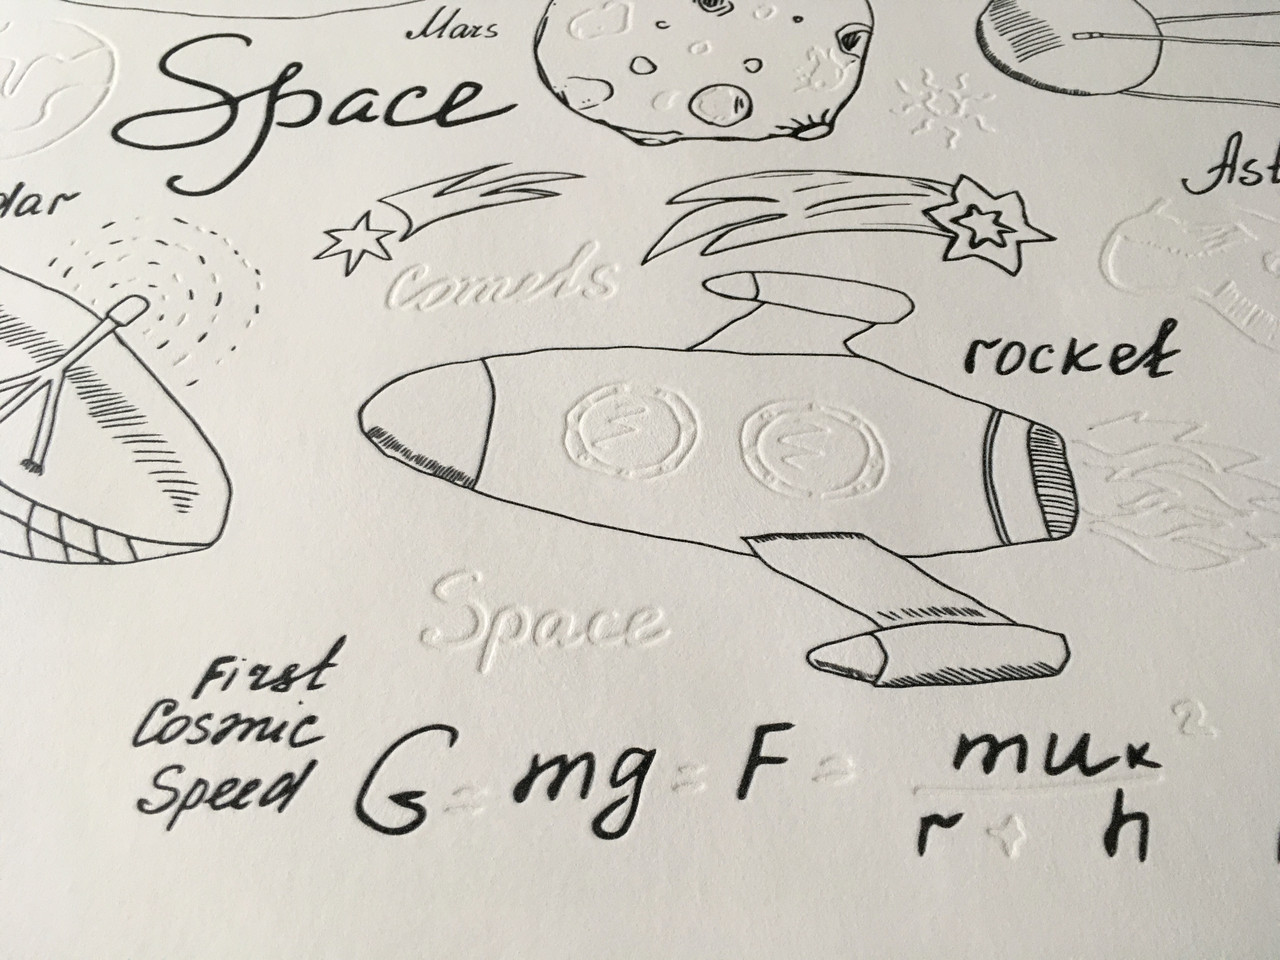 Mars
Space
dar
Ast
Comets
rocket
Space
First
Cosmic
Speed
G = mg = F = mux² / r + h